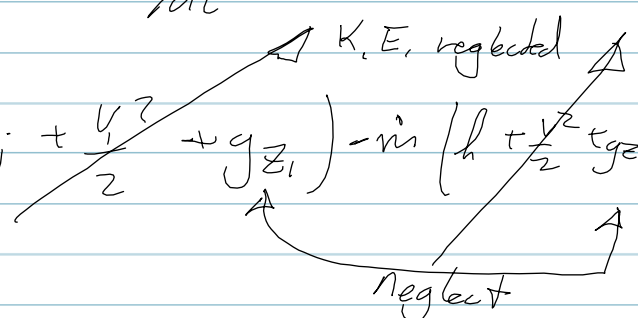 K.E. neglected
+ V₁²/2 + gz₁) - ṁ(h + V²/2 + gz
neglect